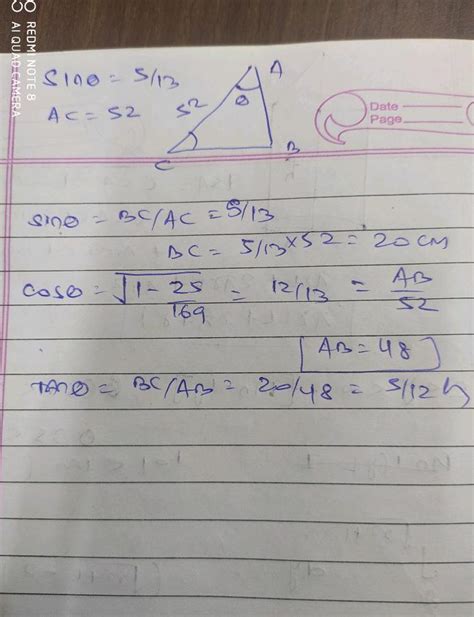 REDMI NOTE 8
AI QUAD CAMERA
Sinθ = 5/13
AC = 52
52
A
θ
B
C
Date
Page
sinθ = BC/AC = 5/13
BC = 5/13 × 52 = 20 CM
cosθ = √1 - 25/169 = 12/13 = AB/52
AB = 48
TANθ = BC/AB = 20/48 = 5/12